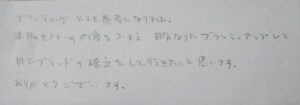 ブランディング とても参考になりました。
本日のセミナーの内容をふまえ、自分なりにブラッシュアップして
自己ブランドの確立をして行きたいと思います。
ありがとうございます。